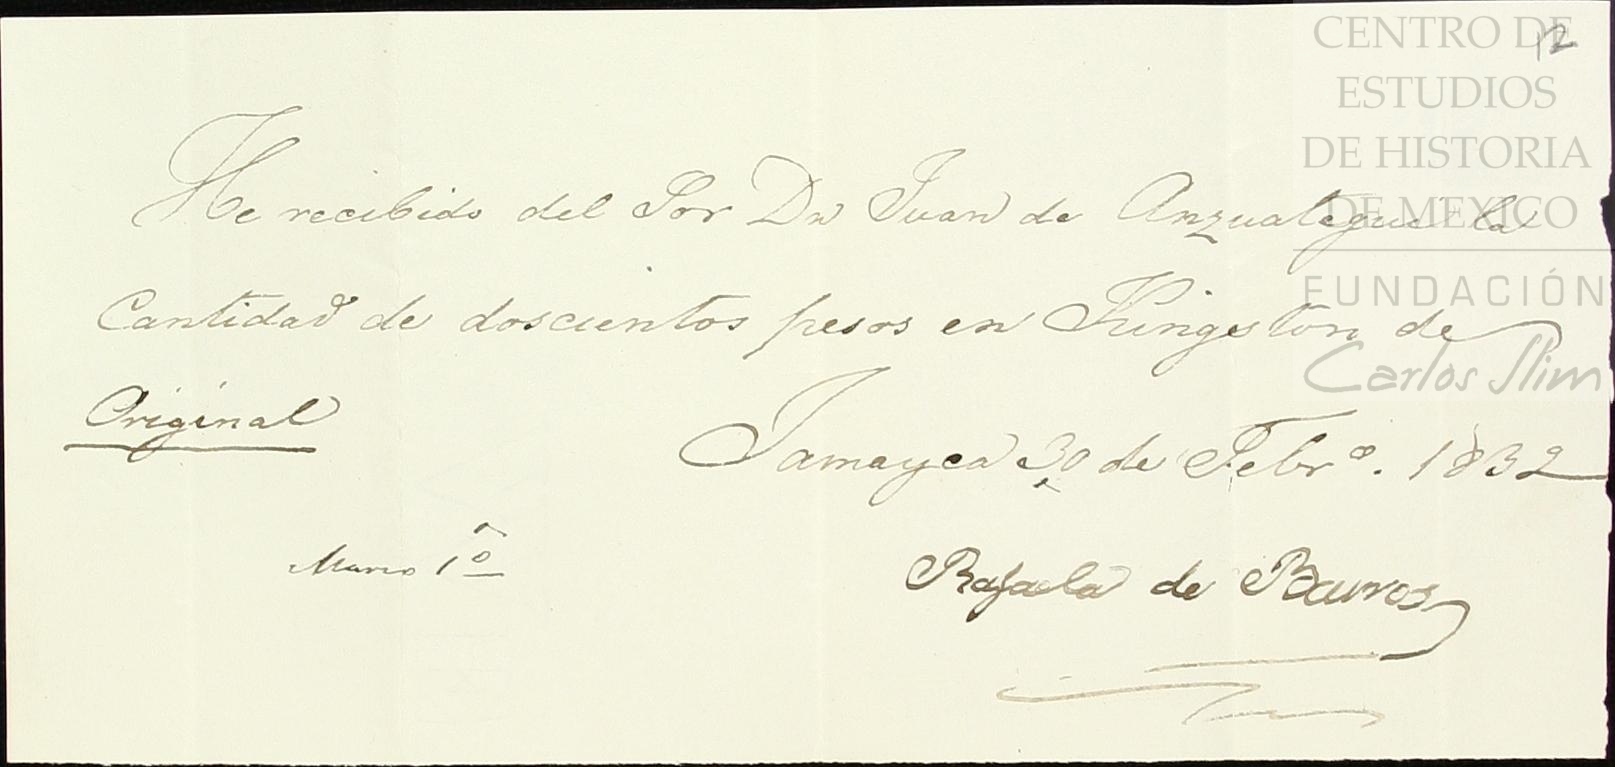 12
CENTRO DE
ESTUDIOS
DE HISTORIA
DE MEXICO
FUNDACIÓN
Carlos Slim
He recibido del Sor Dn Juan de Anzuategui la
Cantidad de doscientos pesos en Kingston de
Original
Jamayca 30 de Febro. 1832
Marzo 1º
Rafaela de Barros